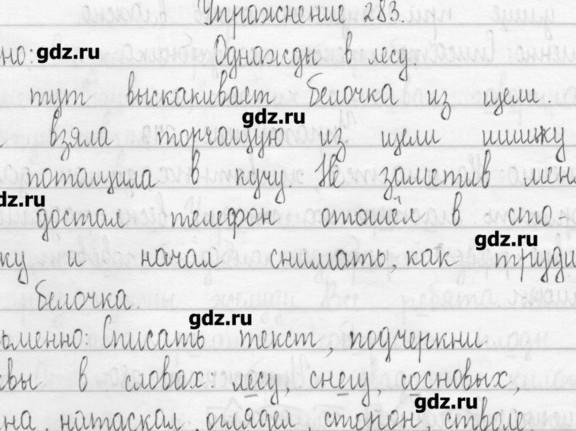 Упражнение 283.
но: gdz.ru Однажды в лесу
тут выскакивает белочка из щели.
gdz.ru
взяла торчащую из щели шишку
потащила в кучу. Не заметив мен
dz.ru
достал телефон отошёл в сто
gdz.ru
ку и начал снимать, как труди
белочка.
gdz.ru
ьменно: Списать текст, подчеркни
квы в словах лесу, снегу, сосновых,
gdz.ru
на, натаскал, оглядел, сторон, стволе,